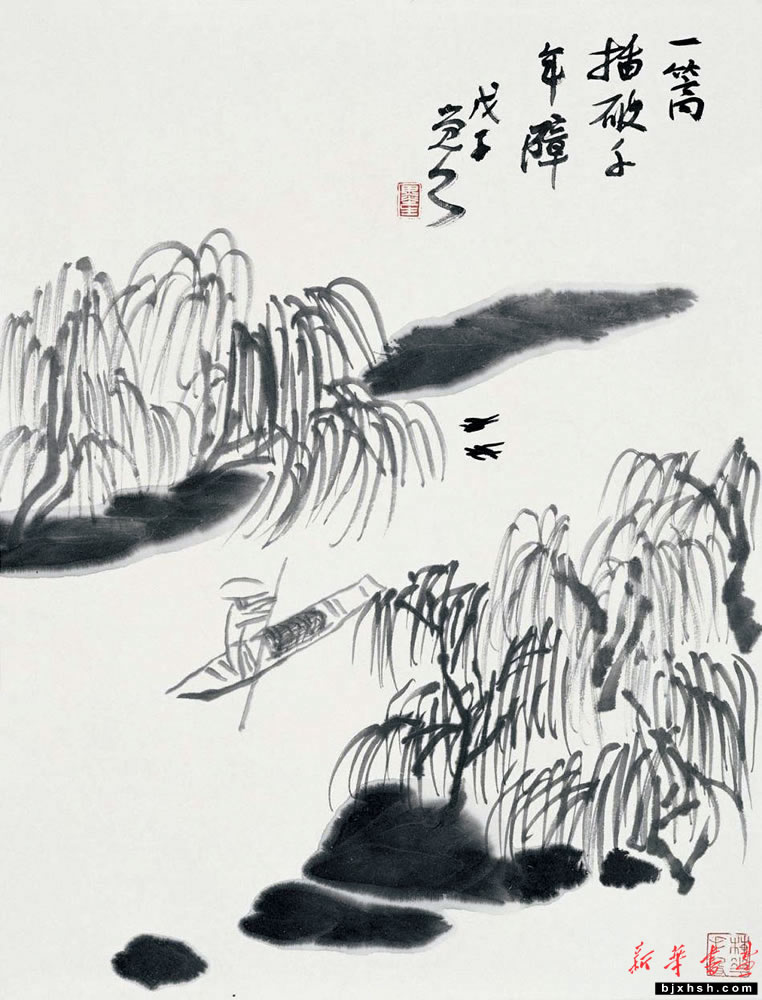 一篙
插破千
年障
戊子
新华书画
bjxhsh.com